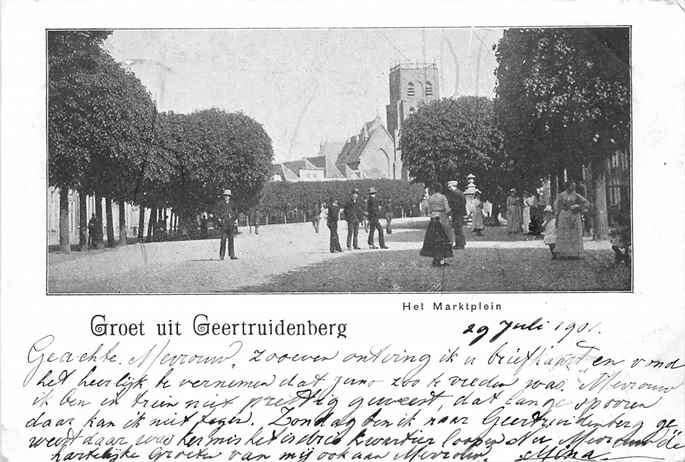 Het Marktplein
Groet uit Geertruidenberg
29 Juli 1901.
Geachte Mevrouw, zooeven ontving ik u briefkaart en vond
het heerlijk te vernemen dat juno zoo te vreden was. Mevrouw
ik ben in trein niet prettig geweest, dat lange spooren
daar kan ik niet tegen. Zondag ben ik naar Geertruidenberg ge
weest daar was kermis het is drie kwartier loopen Nu Mevrouw de
hartelijke Groeten van mij ook aan Mevrouw.